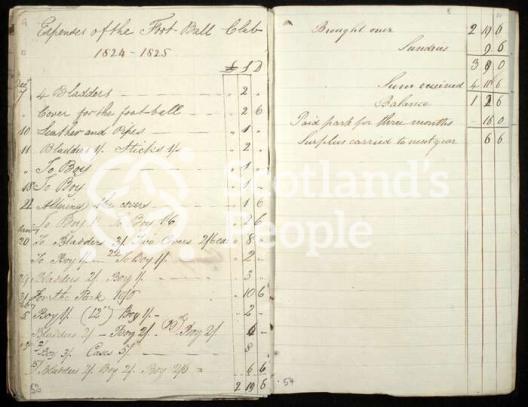 Expenses of the Foot-Ball Club
1824-1825
£ S D
Dec
7 4 Bladders 2
Cover for the foot-ball 2 6
10 Leather and Pipes 1
11 Bladders 1/. Sticks 1/. 2
To Boy 1
18 To Boy 1
22 the covers 1 6
To Boy 1/. To Boy 1/6 2 6
20 To Bladders 2/. Two Covers 2/6 ea 8
To Boy 1/. To Boy 1/. 2
Bladders 2/. Boy 1/. 3
For the Park 10/6 10 6
5 Boy 1/. (12th) Boy 1/- 2
Bladders 2/- Boy 2/. Boy 2/.
Boy 3/. Cases 5/- 8
Bladders 2/. Boy 2/. Boy 2/6 = 6 6
2 19 6
53
Brought over 2 19 6
Sundries 9 6
3 9 0
Sum received 4 11 6
Balance 1 2 6
Paid park for three months 16 0
Surplus carried to next year 6 6
54
Scotland's
People